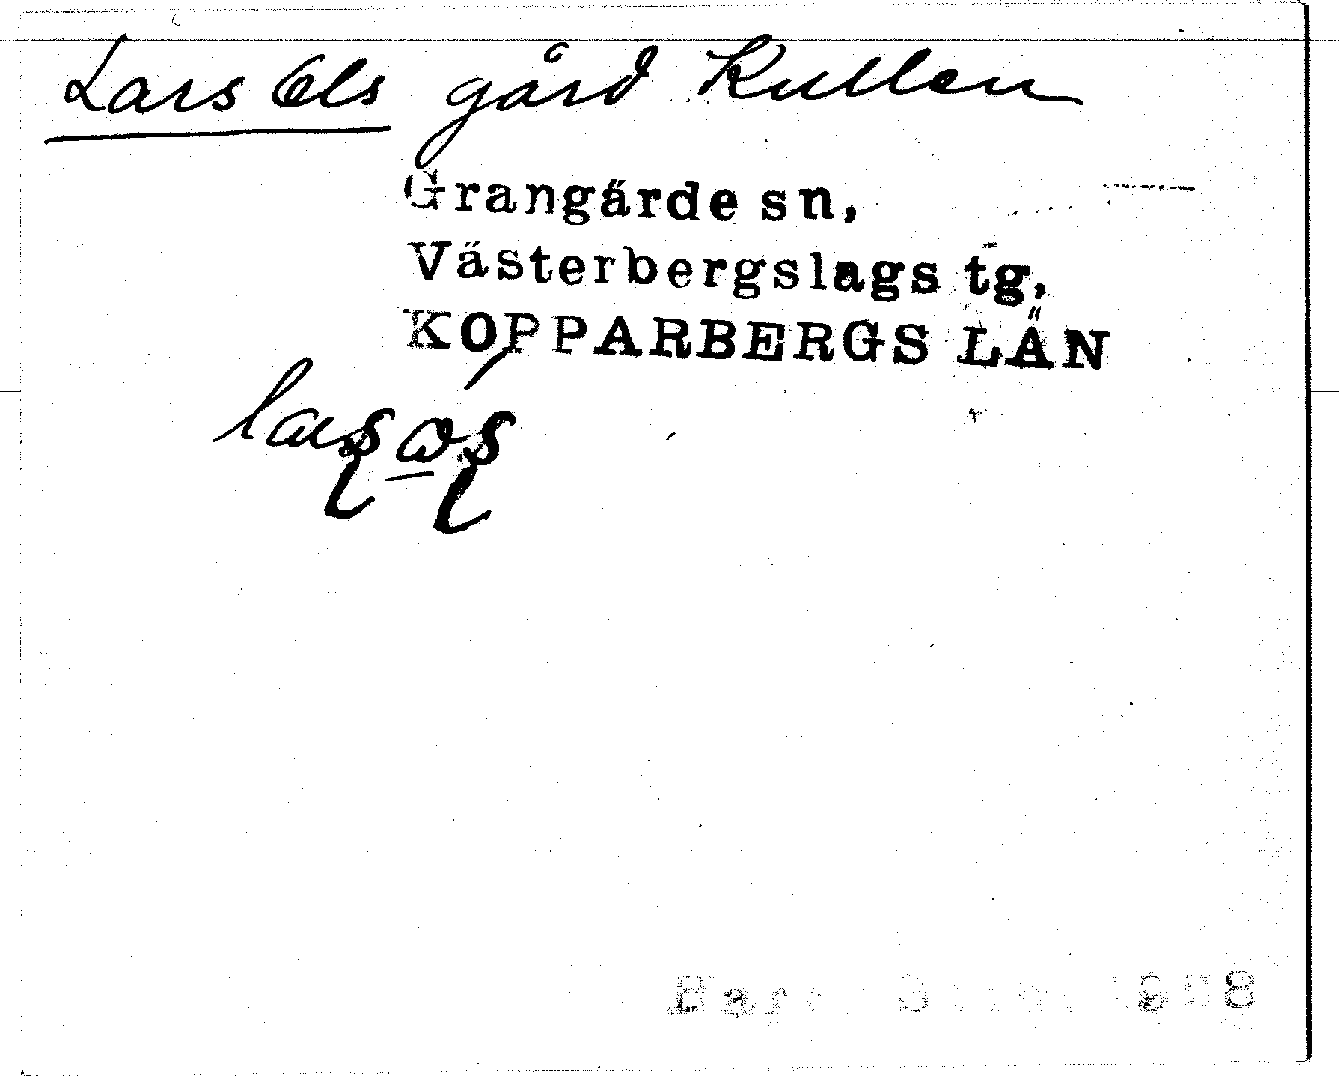 Lars Ols gård Kullen
Grangärde sn,
Västerbergslags tg,
KOPPARBERGS LÄN